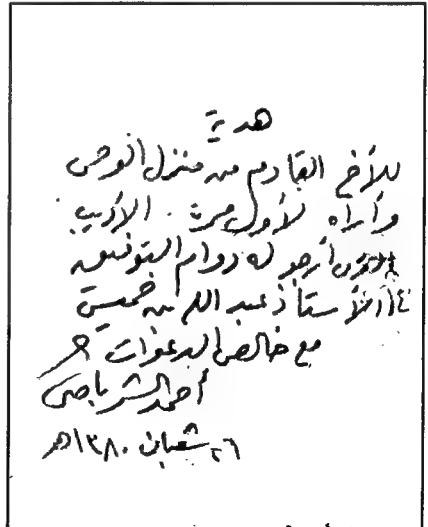 هدية
للأخ القادم من منزل الوحى
وأراه لأول مرة. الأديب
الذى أرجو له دوام التوفيق
الأستاذ عبد الله بن خميس
مع خالص الدعوات
أحمد الشرباصى
٢٦ شعبان ١٣٨٠هـ